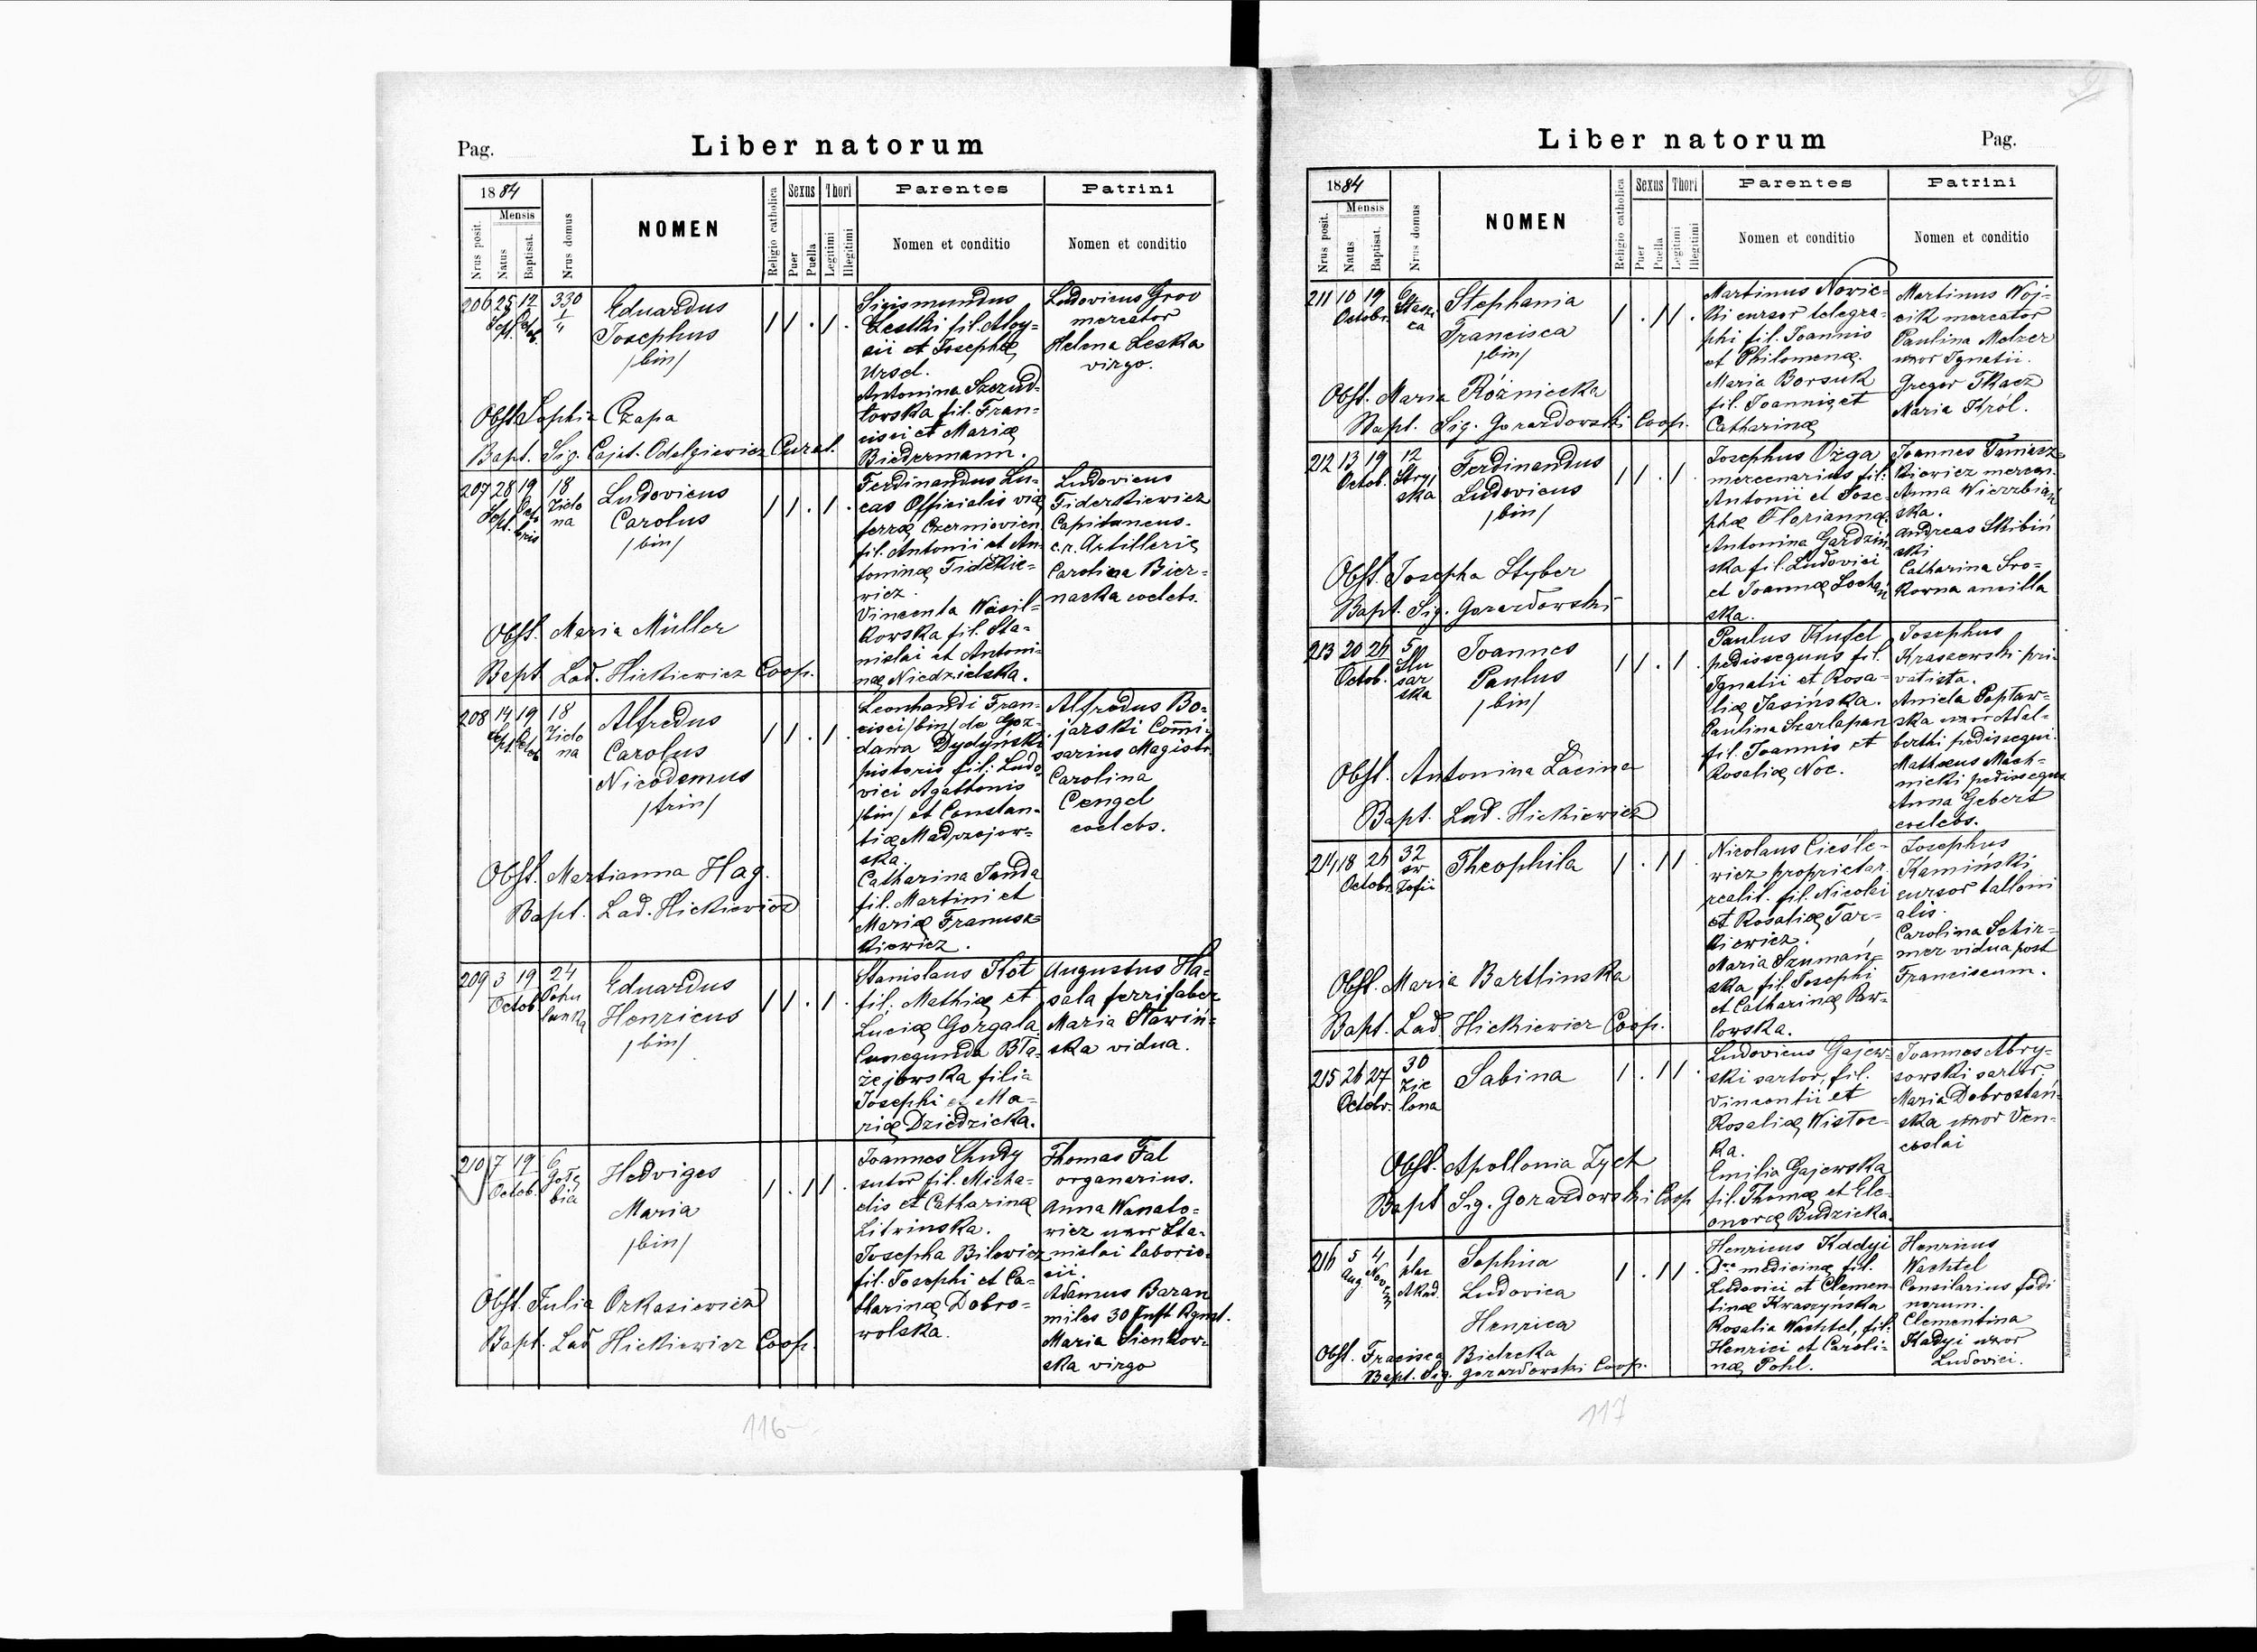 Pag.
Liber natorum
1884
Mensis
Nrus posit.
Natus
Baptisat.
Nrus domus
NOMEN
Religio catholica
Sexus
Puer
Puella
Thori
Legitimi
Illegitimi
Parentes
Nomen et conditio
Patrini
Nomen et conditio
206 25 12 330
Sept. 1/4
Eduardus
Josephus
/bin/
Obst. Sophia Czapa
Bapt. Sig. Cajet. Odelgiewicz Curat.
Sigismundus
Leski fil. Aloy-
sii et Josephæ
Ursel.
Antonina Szczud-
łowska fil. Fran-
cisci et Mariæ
Biedermann.
Ludovicus Grov
mercator
Helena Leska
virgo.
207 28 19 18
Sept. Octo Zielo
bris na
Ludovicus
Carolus
/bin/
Obst. Maria Müller
Bapt. Lad. Hickiewicz Coop.
Ferdinandus Lu-
cas Officialis viæ
ferræ Czerniovien
fil. Antonii et An-
toninæ Fiderkie-
wicz.
Vincenta Wasil-
kowska fil. Sta-
nislai et Antoni-
næ Niedzielska.
Ludovicus
Fiderkiewicz
Capitaneus
c.r. Artilleriæ
Carolina Bier-
nacka coelebs.
208 14 19 18
Sept. Octob Zielo
na
Alfredus
Carolus
Nicodemus
/trin/
Obst. Martianna Hag.
Bapt. Lad. Hickiewicz
Leonhardi Fran-
cisci /bin/ de Goz-
dawa Dydyński
pistoris fil: Ludo-
vici Agathonis
/bin/ et Constan-
tiæ Madrzejow-
ska.
Catharina Janda
fil. Martini et
Mariæ Franusz-
kiewicz.
Alfredus Bo-
jarski Com̄i-
sarius Magistr.
Carolina
Cengel
coelebs.
209 3 19 24
Octob Pohu
lanka
Eduardus
Henricus
/bin/
Stanislaus Kot
fil. Mathiæ et
Luciæ Gorgala
Cunegunda Bła-
żejowska filia
Josephi et Ma-
riæ Dziedzicka.
Augustus Ha-
sala ferrifaber
Maria Sławiń-
ska vidua.
210 7 19 6
Octob. Gołę
bia
Hedviges
Maria
/bin/
Obst. Julia Orkasiewicz
Bapt. Lad Hickiewicz Coop.
Joannes Chudy
sutor fil. Micha-
elis et Catharinæ
Litvinska.
Josepha Bilewicz
fil. Josephi et Ca-
tharinæ Dobro-
wolska.
Thomas Fal
organarius.
Anna Wanato-
wicz uxor Sta-
nislai laborio-
sii.
Adamus Baran
miles 30 Inft Rgmt.
Maria Sienkow-
ska virgo
116
Liber natorum
Pag.
1884
Mensis
Nrus posit.
Natus
Baptisat.
Nrus domus
NOMEN
Religio catholica
Sexus
Puer
Puella
Thori
Legitimi
Illegitimi
Parentes
Nomen et conditio
Patrini
Nomen et conditio
211 10 19 6
Octobr. Staszi
ca
Stephania
Francisca
/bin/
Obst. Maria Różniecka
Bapt. Sig. Gorazdowski Coop.
Martinus Novic-
ki cursor telegra-
phi fil. Joannis
et Philomenæ.
Maria Borsuk
fil. Joannis et
Catharinæ
Martinus Woj-
cik mercator
Paulina Melzer
uxor Ignatii.
Gregor Tkacz
Maria Król.
212 13 19 12
Octob. Stryj
ska
Ferdinandus
Ludovicus
/bin/
Obst. Josepha Styber
Bapt. Sig. Gorazdowski
Josephus Ożga
mercenarius fil.
Antonii et Jose-
phæ Florianna.
Antonina Gardziń
ska fil. Ludovici
et Joannæ
ska.
Joannes Taniasz-
kiewicz mercen.
Anna Wierzbiań
ska.
Andreas Skibiń
ski
Catharina Sro-
kowna ancilla
213 20 26 5
Octob. Ślu
sar
ska
Joannes
Paulus
/bin/
Obst. Antonina Łacina
Bapt. Lad. Hickiewicz
Paulus Kufel
pedissequus fil.
Ignatii et Rosa-
liæ Jasińska.
Paulina Szarłapan
fil. Joannis et
Rosaliæ Noc.
Josephus
Kraszewski pri-
vatista.
Aniela Popław-
ska uxor Adal-
berthi pedissequi.
Mathæus Mach-
nicki pedissequus
Anna Gebert
coelebs.
214 18 26 32
Octobr. św
Zofii
Theophila
Obst. Maria Bartlinska
Bapt. Lad Hickiewicz Coop.
Nicolaus Cieśle-
wicz proprietar.
realit. fil. Nicolai
et Rosaliæ Tar-
kiewicz.
Maria Szumań-
ska fil. Josephi
et Catharinæ Paw-
łowska.
Josephus
Kamiński
cursor talloni
alis.
Carolina Schir-
mer vidua post
Franciscum.
215 26 27 30
Octobr. Zie
lona
Sabina
Obst. Apollonia Zych
Bapt Sig. Gorazdowski Coop
Ludovicus Gajew-
ski sartor, fil.
Vincentii et
Rosaliæ Wistoc-
ka.
Emilia Gajewska
fil. Thomæ et Ele-
onoræ Budzicka.
Joannes Abry-
sowski sartor
Maria Dobrostań-
ska uxor Ven-
ceslai
216 5 4 1
Aug Nov plac
Akad.
Sophia
Ludovica
Henrica
Obst. Fracisca Bielecka
Bapt. Sig. Gorazdowski Coop.
Henricus Kadyi
Drr medicinæ fil.
Ludovici et Clemen
tinæ Kraszyńska
Rosalia Wachtel, fil.
Henrici et Caroli-
næ Pohl.
Henricus
Wachtel
Consilarius fodi
narum.
Clementina
Kadyi uxor
Ludovici.
117